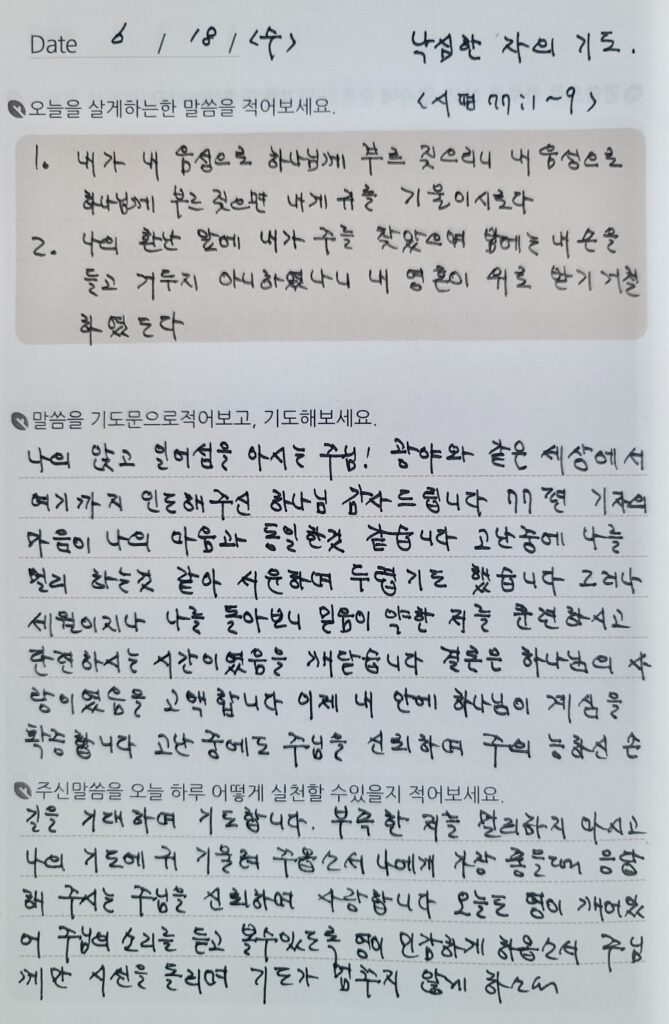 Date 6 / 18 / <수> 낙심한 자의 기도.
오늘을 살게하는한 말씀을 적어보세요. <시편 77:1~9>
1. 내가 내 음성으로 하나님께 부르 짖으리니 내 음성으로
하나님께 부르 짖으면 내게 귀를 기울이시로다
2. 나의 환난 날에 내가 주를 찾았으며 밤에는 내 손을
들고 거두지 아니하였나니 내 영혼이 위로 받기 거절
하였도다
말씀을 기도문으로적어보고, 기도해보세요.
나의 앉고 일어섬을 아시는 주님! 광야와 같은 세상에서
여기까지 인도해주신 하나님 감사드립니다 77편 기자의
마음이 나의 마음과 동일한것 같습니다 고난중에 나를
멀리 하는것 같아 서운하며 두렵기도 했습니다 그러나
세월이지나 나를 돌아보니 믿음이 약한 저를 훈련하시고
단련하시는 시간이였음을 깨닫습니다 결론은 하나님의 사
랑이였음을 고백합니다 이제 내 안에 하나님이 계심을
확증합니다 고난 중에도 주님을 신뢰하며 주의 능하신 손
주신말씀을 오늘 하루 어떻게 실천할 수있을지 적어보세요.
길을 기대하여 기도합니다. 부족한 저를 멀리하지 마시고
나의 기도에 귀 기울여 주옵소서 나에게 가장 좋을때 응답
해 주시는 주님을 신뢰하며 사랑합니다 오늘도 영이 깨어있
어 주님의 소리를 듣고 볼수있도록 영이 민감하게 하옵소서 주님
께만 시선을 돌리며 기도가 멈추지 않게 하소서